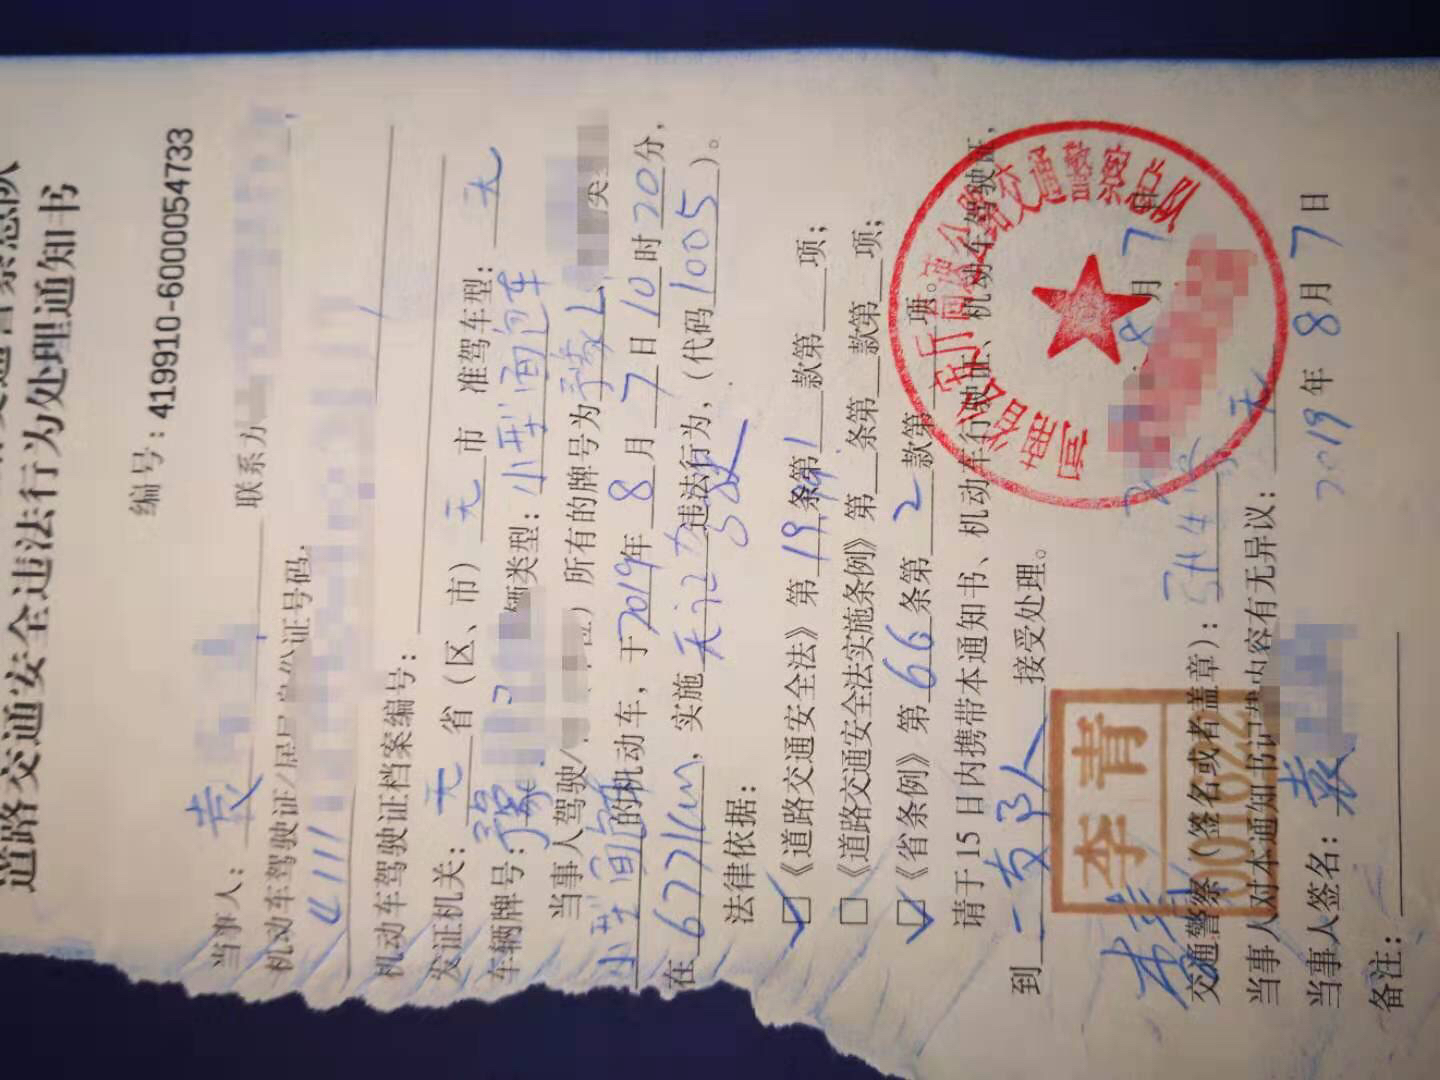 道路交通安全违法行为处理通知书
编号：419910-6000054733
当事人：袁 联系方
机动车驾驶证/居民身份证号码
4111
机动车驾驶证档案编号：
发证机关：无省（区、市）无市 准驾车型：无
车辆牌号：豫 辆类型：小型面包车
当事人驾驶/ ）所有的牌号为豫L
的机动车，于2019年8月7日10时20分，
在677km，实施无证驾驶违法行为，（代码1005）。
法律依据：
《道路交通安全法》第19条第1款第 项；
《道路交通安全法实施条例》第 条第 款第 项；
《省条例》第66条第2款第 项。
请于15日内携带本通知书、机动车行驶证、机动车驾驶证，
到一支队接受处理。
李青
001622
交通警察（签名或者盖章）： 8月7日
当事人对本通知书记载内容有无异议：无
当事人签名：袁 2019年8月7日
备注：